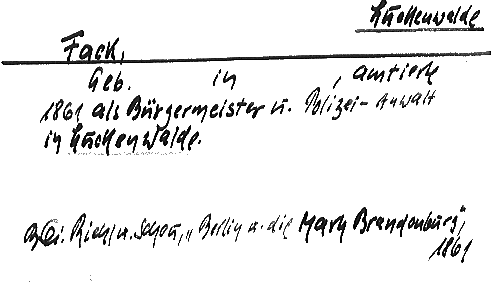 Luckenwalde
Fack,
Geb. in , amtierte
1861 als Bürgermeister u. Polizei-Anwalt
in Luckenwalde.
Riehl u. Scheu, "Berlin u. die Mark Brandenburg",
1861